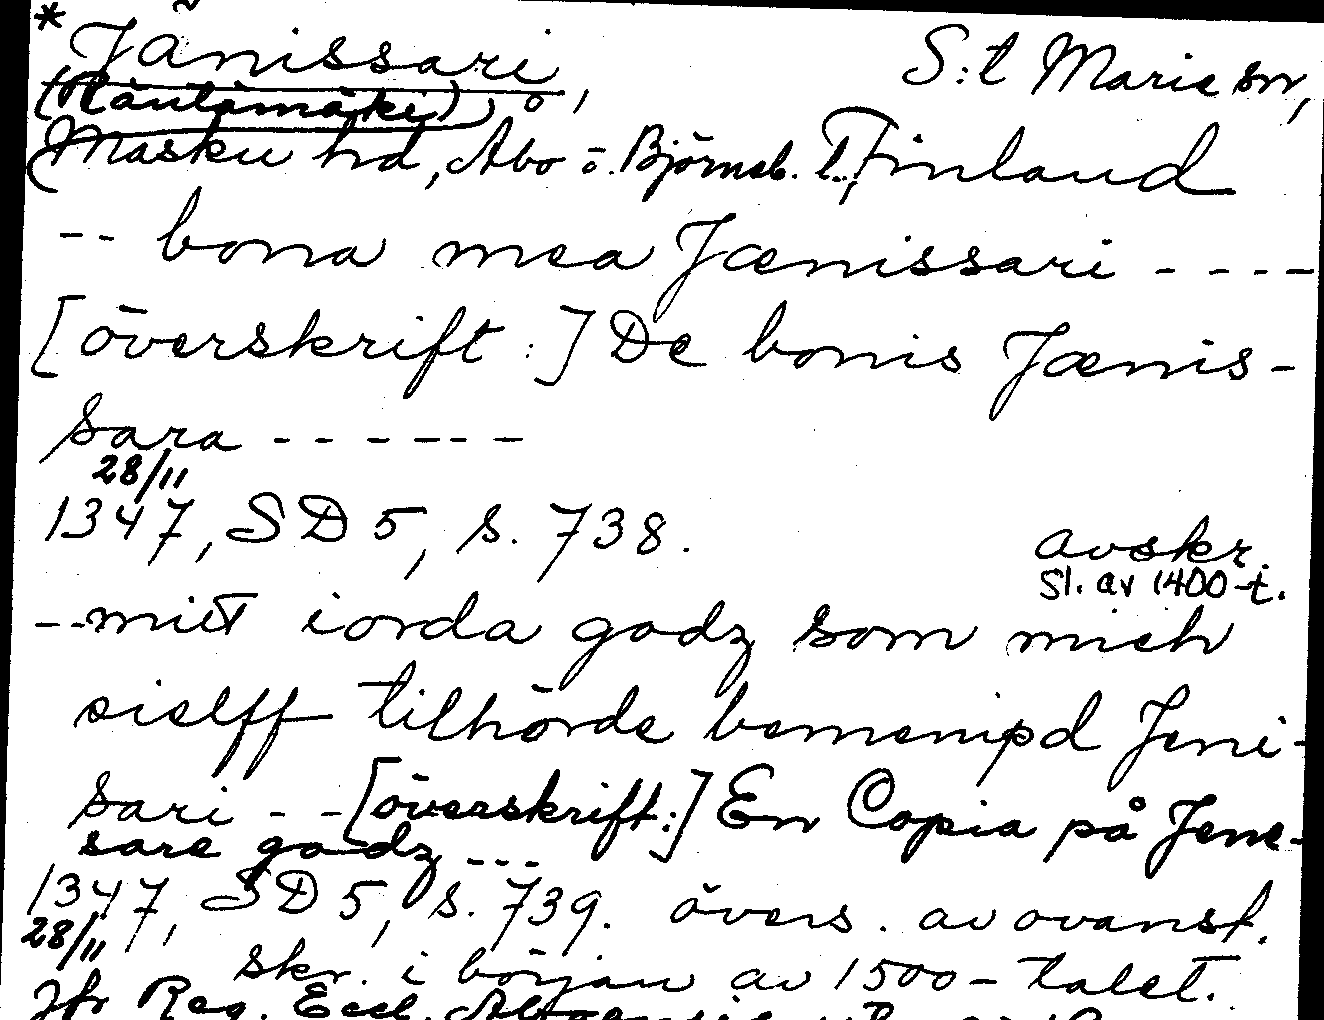 * Jänissari, S:t Marie sn,
(Räntämäki), ö,
Masku hd, Åbo o. Björneb. l., Finland
-- bona mea Jænissari ----
[överskrift:] De bonis Jænis-
sara ------
28/11
1347, SD 5, s. 738. avskr.
sl. av 1400-t.
--mit iorda godz som mich
sielff tilhörde benempd Jeni-
sari --[överskrift:] En Copia på Jene-
sare godz ---
1347, SD 5, s. 739. övers. av ovanst.
28/11
skr. i början av 1500-talet.
Jfr Reg. Eccl. Aboensis